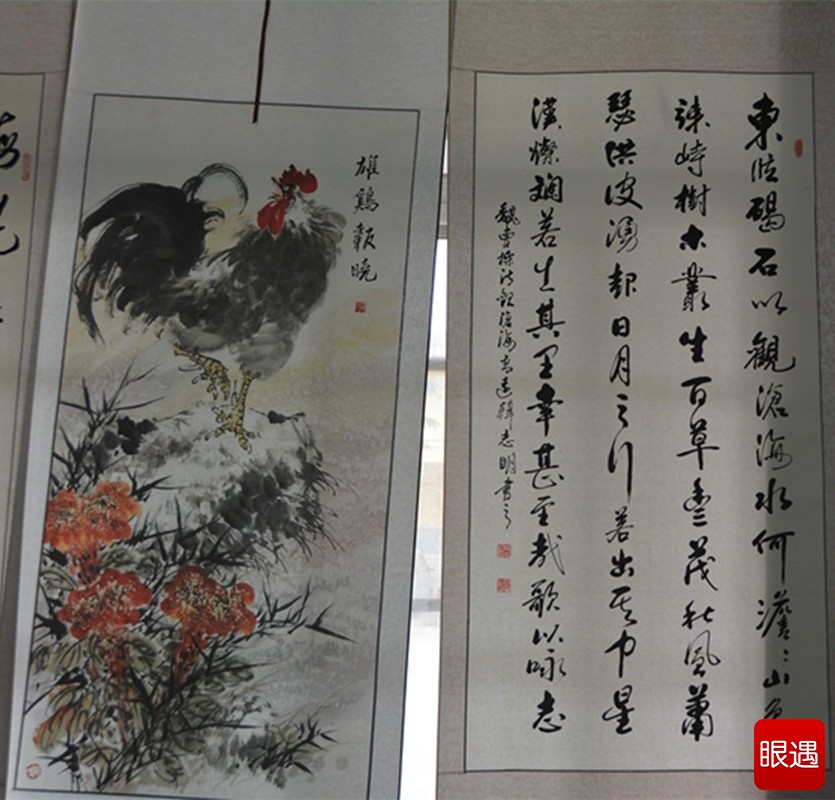 東临碣石以觀滄海水何澹〻山
竦峙樹木叢生百草豐茂秋風蕭
瑟洪波湧起日月之行若出其中星
漢燦斕若生其里幸甚至哉歌以咏志
魏曹操詩觀滄海 遠韓志明書之
雄鷄報曉
眼遇